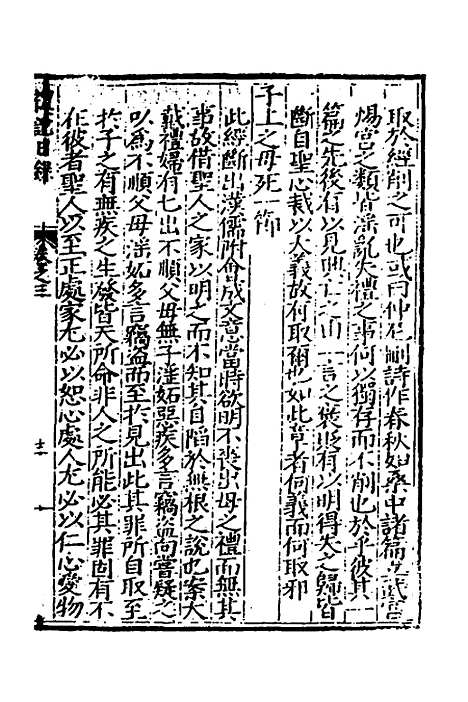 取於經削之可也或曰仲尼刪詩作春秋如桑中諸篇立武宮
煬宮之類皆淫詭失禮之事何以獨存而不削也於乎彼其一
篇之先後有以見興亡之由一言之褒貶有以明得失之歸皆
斷自聖心裁以大義故有取爾也如此章者何義而何取邪
子上之母死一節
此經斷出漢儒附會成文意當時欲明不喪出母之禮而無其
事故借聖人之家以明之而不知其自陷於無根之說也案大
戴禮婦有七出不順父母無子淫妬惡疾多言竊盜向嘗疑之
以為不順父母淫妬多言竊盜而至於見出此其罪所自取至
於子之有無疾之生發皆天所命非人之所能必其罪固有不
在彼者聖人以至正處家尤必以恕心處人尤必以仁心愛物
記日錄 卷之三 十二